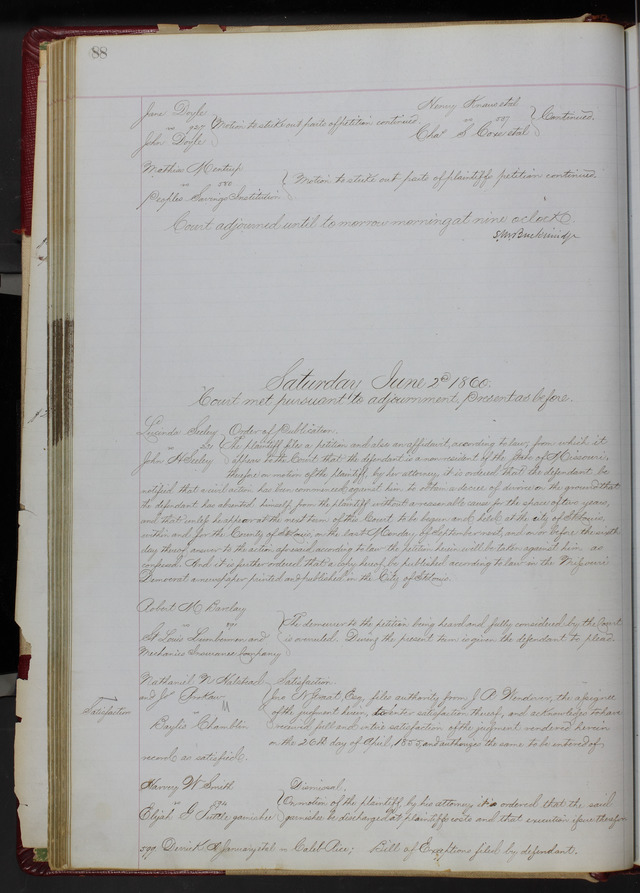 88
Jane Doyle
vs 927 } Motion to strike out parts of petition continued
John Doyle
Henry Knaus et al
vs 557 } Continued
Chas S Cow et al
Mathias Mentrup
vs 550 } Motion to strike out parts of plaintiffs petition continued
Peoples Savings Institution
Court adjourned until tomorrow morning at nine oclock
Saturday June 2nd 1860.
Court met pursuant to adjournment, present as before.
Lucinda Seeley Order of Publication.
vs 20 } The plaintiff files a petition and also an affidavit, according to law, from which it
John H Seeley appears to the Court that the defendant is a nonresident of the State of Missouri,
therefore on motion of the plaintiff, by her attorney, it is ordered that the defendant be
notified that civil action has been commenced against him to obtain a decree of divorce on the ground that
the defendant has absented himself from the plaintiff without a reasonable cause for the space of two years,
and that unless he appear at the next term of this Court, to be begun and held at the city of St Louis,
within and for the County of St Louis, on the last Monday of September next, and on or before the sixth
day thereof answer to the action aforesaid according to law the petition herein will be taken against him as
confessed. And it is further ordered that a copy hereof be published according to law in the Missouri
Democrat a newspaper printed and published in the City of St Louis.
Robert M Barclay
vs } The demurrer to the petition being heard and fully considered by the Court
St Louis Lumbermen and is overruled. During the present term is given the defendant to plead.
Mechanics Insurance Company
Nathaniel W Halstead Satisfaction.
and Jr Jno N Grant, Esq, files authority from J P Vendover, the assignee
Satisfaction vs of the judgment herein, to enter satisfaction thereof, and acknowledges to have
Baylis Chamblin received full and entire satisfaction of the judgment rendered herein
on the 26th day of April, 1855, and authorizes the same to be entered of
record as satisfied.
Harvey W Smith Dismissal.
vs 574 } On motion of the plaintiff, by his attorney, it is ordered that the said
Elijah G Tuttle, garnishee garnishee be discharged at plaintiffs costs and that execution issue therefor
599 Derrick A January et al vs Caleb Rice; Bill of Exceptions filed by defendant.